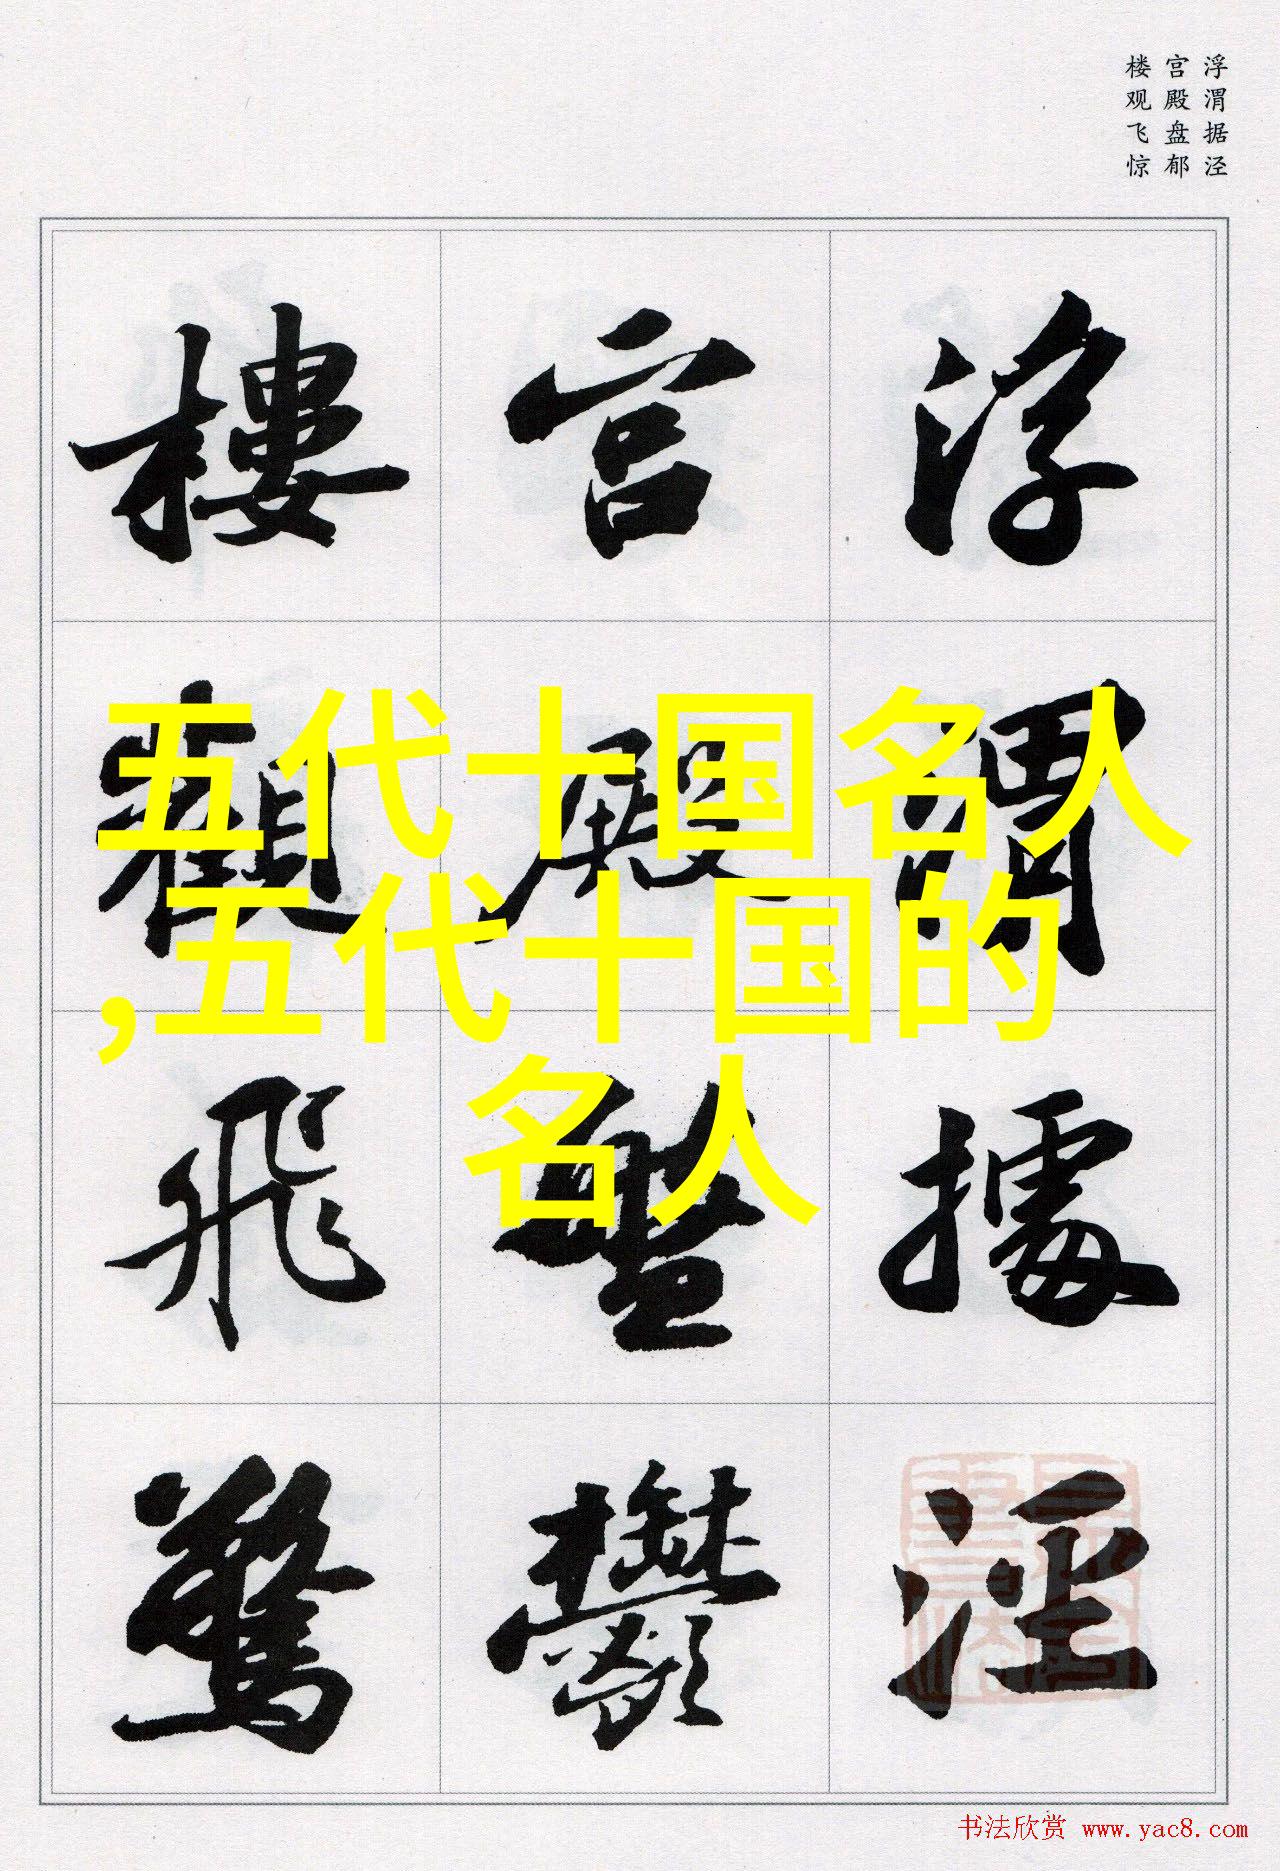 浮渭据泾
宫殿盘郁
楼观飞惊
浮渭據涇
宫殿盤鬱
樓觀飛驚
五代十国名人
,五代十国的
名人
书法欣赏 www.yac8.com